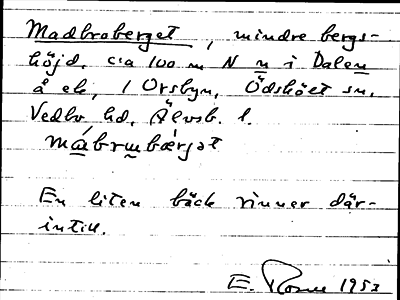 Madbroberget, mindre bergs-
höjd, c:a 100 m N n i Dalen
å ek, 1 Orsbyn, Ödskölt sn,
Vedbo hd, Älvsb. l.
mábrumbærjət
En liten bäck rinner där-
intill.
E. 1953